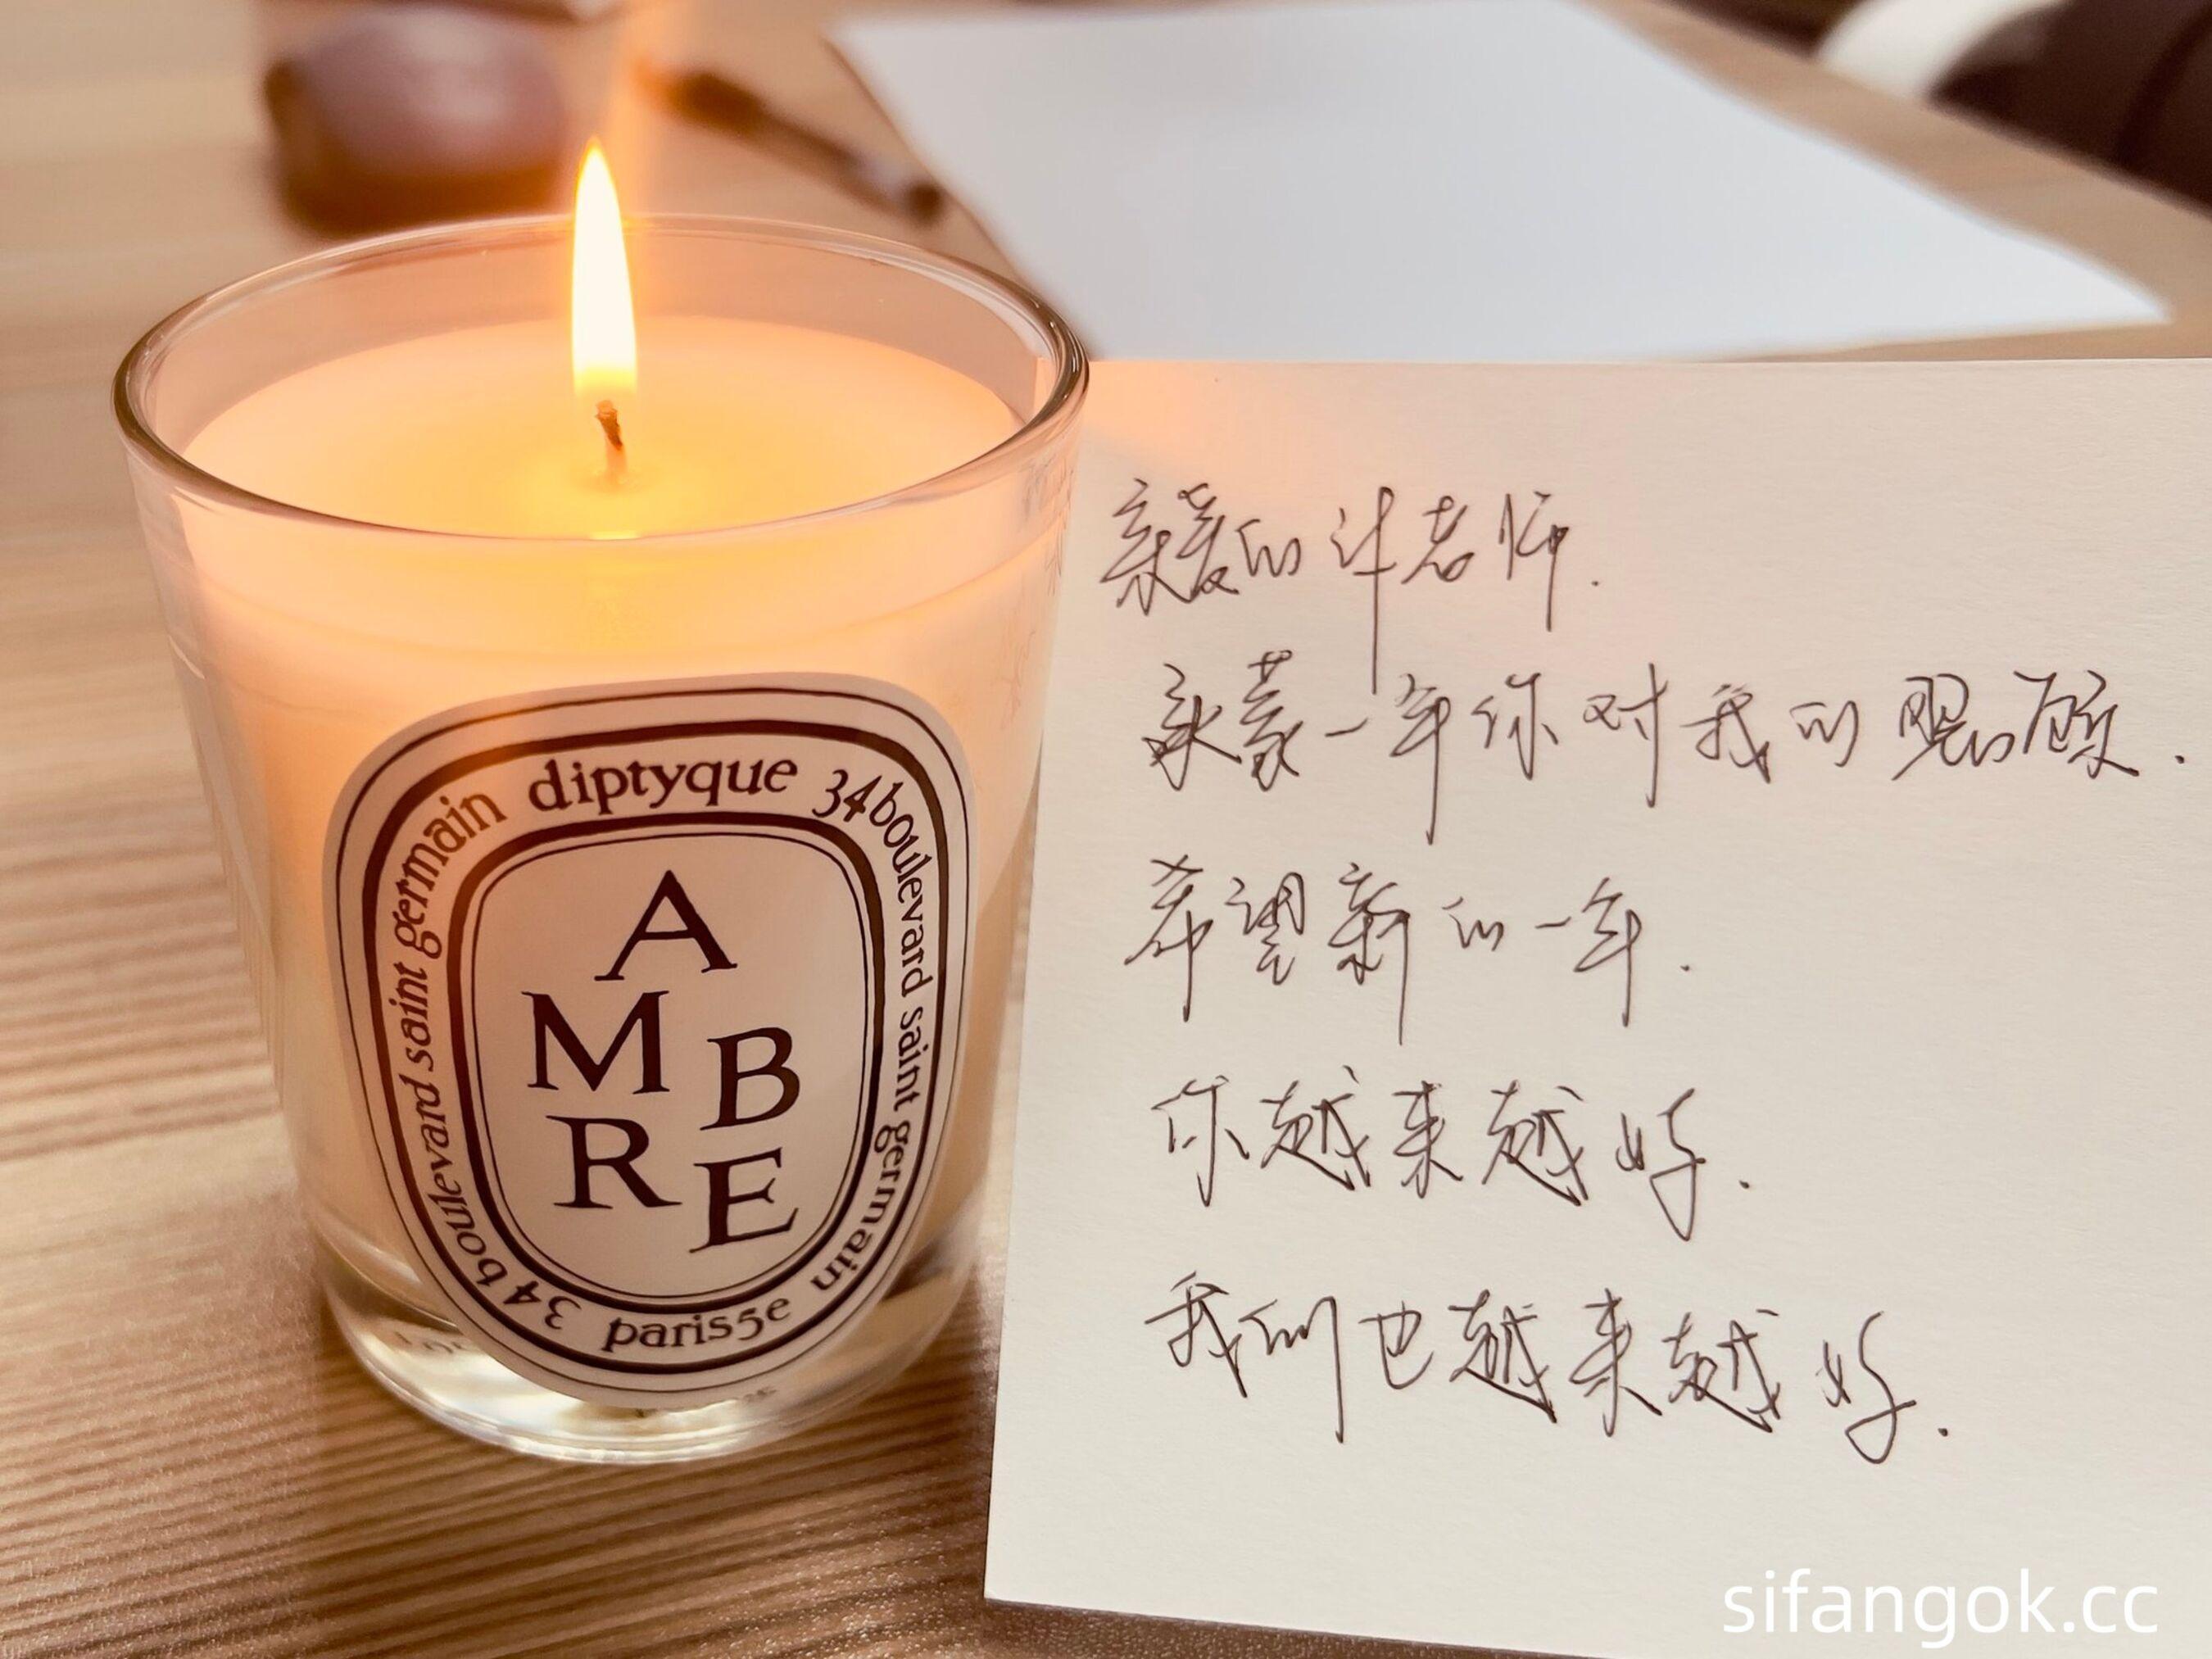 diptyque 34 boulevard saint germain paris5e 34 boulevard saint germain
A
M B
R E
亲爱的许老师.
承蒙一年你对我的照顾.
希望新的一年.
你越来越好.
我们也越来越好.
sifangok.cc